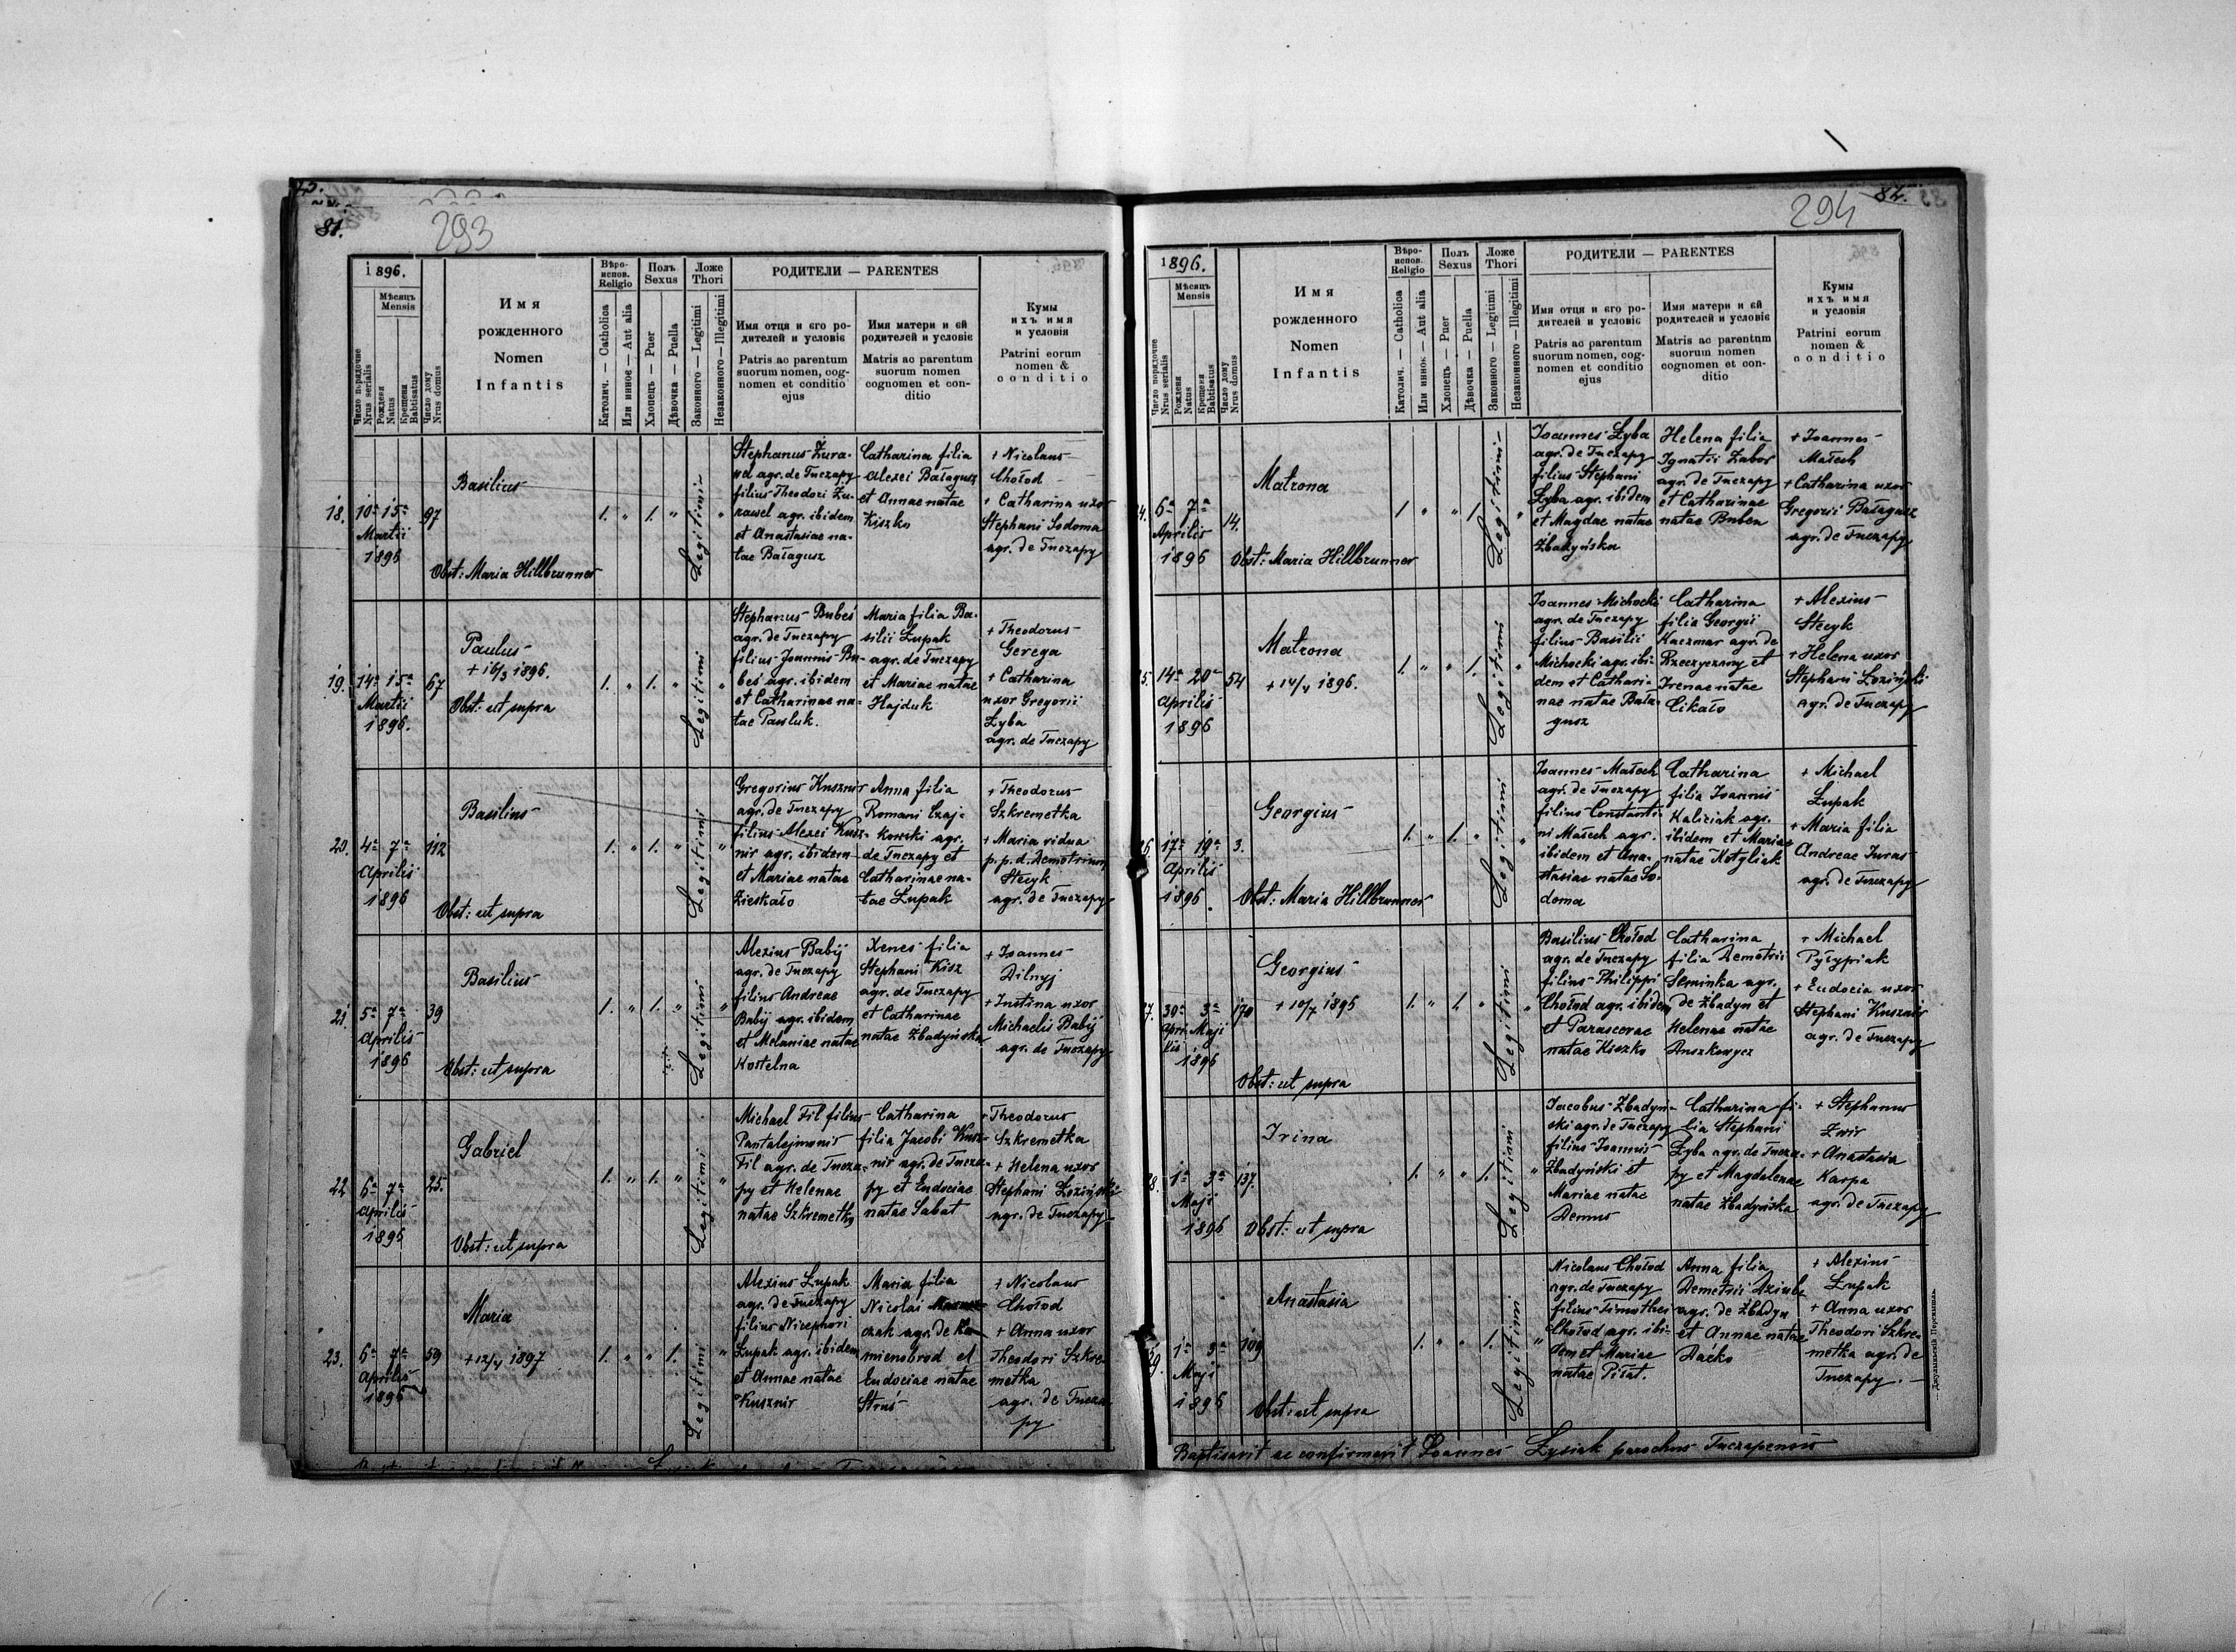 81.
293
1896.
Мѣсяцъ
Mensis
Число порядочне
Nrus serialis
Рожденя
Natus
Крещеня
Babtisatus
Число дому
Nrus domus
Имя
рожденного
Nomen
Infantis
Вѣро-
испов.
Religio
Католич. — Catholica
Или инноє — Aut alia
Полъ
Sexus
Хлопецъ — Puer
Дѣвочка — Puella
Ложе
Thori
Законного — Legitimi
Незаконного — Illegitimi
РОДИТЕЛИ — PARENTES
Имя отця и єго ро-
дителей и условіє
Patris ac parentum
suorum nomen, cog-
nomen et conditio
ejus
Имя матери и єй
родителей и условіє
Matris ac parentum
suorum nomen
cognomen et con-
ditio
Кумы
ихъ имя
и условія
Patrini eorum
nomen &
conditio
18.
10ª 15ª
Martii
1896
97
Basilius
Obst: Maria Hillbrunner
1. " 1. " Legitimi "
Stephanus Żura-
wel agr. de Tuczapy
filius Theodori Żu-
rawel agr. ibidem
et Anastasiae na-
tae Bałagusz
Catharina filia
Alexei Bałagusz
et Annae natae
Kiszko
+ Nicolaus
Chołod
+ Catharina uxor
Stephani Sodoma
agr. de Tuczapy
19.
14ª 15ª
Martii
1896.
67
Paulus
+ 16/3 1896.
Obst: ut supra
1. " 1. " Legitimi "
Stephanus Bubeś
agr. de Tuczapy
filius Joannis Bu-
beś agr. ibidem
et Catharinae na-
tae Pawluk.
Maria filia Ba-
silii Łupak
agr. de Tuczapy
et Mariae natae
Hajduk
+ Theodorus
Gerega
+ Catharina
uxor Gregorii
Łyba
agr. de Tuczapy
20.
4ª 7ª
Aprilis
1896
112
Basilius
Obst: ut supra
1. " 1. " Legitimi "
Gregorius Kusznir
agr. de Tuczapy
filius Alexei Kusz-
nir agr. ibidem
et Mariae natae
Zieskało
Anna filia
Romani Czaj-
kowski agr.
de Tuczapy et
Catharinae na-
tae Łupak
+ Theodorus
Szkremetka
+ Maria vidua
p. p. d. Demetrium
Stecyk
agr. de Tuczapy
21.
5ª 7ª
Aprilis
1896
39
Basilius
Obst: ut supra
1. " 1. " Legitimi "
Alexius Babij
agr. de Tuczapy
filius Andreae
Babij agr. ibidem
et Melaniae natae
Kostelna
Xenes filia
Stephani Kisz
agr. de Tuczapy
et Catharinae
natae Żbadyńska
+ Joannes
Dilnyj
+ Justina uxor
Michaelis Babij
agr. de Tuczapy
22
6ª 7ª
Aprilis
1896
25.
Gabriel
Obst: ut supra
1. " 1. " Legitimi "
Michael Fil filius
Pantalejmonis
Fil agr. de Tucza-
py et Helenae
natae Szkremetka
Catharina
filia Jacobi Kusz-
nir agr. de Tucza-
py et Eudociae
natae Sabat
+ Theodorus
Szkremetka
+ Helena uxor
Stephani Łoziński
agr. de Tuczapy
23.
6ª 7ª
Aprilis
1896
59
Maria
+ 12/4 1897
1. " " 1. Legitimi "
Alexius Łupak
agr. de Tuczapy
filius Nicephori
Łupak agr. ibidem
et Annae natae
Kusznir
Maria filia
Nicolai
czak agr. de Ka-
mienobrod et
Eudociae natae
Struś
+ Nicolaus
Chołod
+ Anna uxor
Theodori Szkre-
metka
agr. de Tucza
py
82.
294
1896.
Мѣсяцъ
Mensis
Число порядочне
Nrus serialis
Рожденя
Natus
Крещеня
Babtisatus
Число дому
Nrus domus
Имя
рожденного
Nomen
Infantis
Вѣро-
испов.
Religio
Католич. — Catholica
Или инноє — Aut alia
Полъ
Sexus
Хлопецъ — Puer
Дѣвочка — Puella
Ложе
Thori
Законного — Legiumi
Незаконного — Illegitimi
РОДИТЕЛИ — PARENTES
Имя отця и єго ро-
дителей и условіє
Patris ac parentum
suorum nomen, cog-
nomen et conditio
ejus
Имя матери и єй
родителей и условіє
Matris ac parentum
suorum nomen
cognomen et con-
ditio
Кумы
ихъ имя
и условія
Patrini eorum
nomen &
conditio
4.
6ª 7ª
Aprilis
1896
14.
Matrona
Obst: Maria Hillbrunner
1. " " 1. Legitimi "
Joannes Łyba
agr. de Tuczapy
filius Stephani
Łyba agr. ibidem
et Magdae natae
Żbadyńska
Helena filia
Ignatii Zabor
agr. de Tuczapy
et Catharinae
natae Buben
+ Joannes
Małech
+ Catharina uxor
Gregorii Bałagusz
agr. de Tuczapy
5.
14ª 20ª
Aprilis
1896
54
Matrona
+ 14/4 1896.
1. " " 1. Legitimi "
Joannes Michocki
agr. de Tuczapy
filius Basilii
Michocki agr. ibi-
dem et Cathari-
nae natae Bała-
gusz
Catharina
filia Georgii
Kaczmar agr. de
Rzeczyczany et
Irenae natae
Cikało
+ Alexius
Stecyk
+ Helena uxor
Stephani Łoziński
agr. de Tuczapy
6.
17ª 19ª
Aprilis
1896.
3.
Georgius
Obst: Maria Hillbrunner
1. " 1. " Legitimi "
Joannes Małech
agr. de Tuczapy
filius Constanti-
ni Małech agr.
ibidem et Ana-
stasiae natae So-
doma
Catharina
filia Joannis
Kaliciak agr.
ibidem et Mariae
natae Kotyliak
+ Michael
Łupak
+ Maria filia
Andreae Juras
agr. de Tuczapy
7.
30ª 3ª
Apri- Maji
lis
1896
170
Georgius
+ 10/7 1896
Obst: ut supra
1. " 1. " Legitimi "
Basilius Chołod
agr. de Tuczapy
filius Philippi
Chołod agr. ibidem
et Parascevae
natae Kiszko
Catharina
filia Demetrii
Seminka agr.
de Żbadyn et
Helenae natae
Duszkowycz
+ Michael
Pyłypiak
+ Eudocia uxor
Stephani Kusznir
agr. de Tuczapy
8.
1ª 3ª
Maji
1896
137.
Irina
Obst: ut supra
1. " " 1. Legitimi "
Jacobus Żbadyń-
ski agr. de Tuczapy
filius Joannis
Żbadyński et
Mariae natae
Demus
Catharina fi-
lia Stephani
Łyba agr. de Tucza-
py et Magdalenae
natae Żbadyńska
+ Stephanus
Zwir
+ Anastasia
Karpa
agr. de Tuczapy
29.
1ª 3ª
Maji
1896
109
Anastasia
Obst: ut supra
1. " " 1. Legitimi "
Nicolaus Chołod
agr. de Tuczapy
filius Timothei
Chołod agr. ibi-
dem et Mariae
natae Piłat.
Anna filia
Demetrii Dziuba
agr. de Żbadyn
et Annae natae
Daćko
+ Alexius
Łupak
+ Anna uxor
Theodori Szkre-
metka agr. de
Tuczapy. —
Baptisavit ac confirmavit Joannes Łysiak parochus Tuczapensis